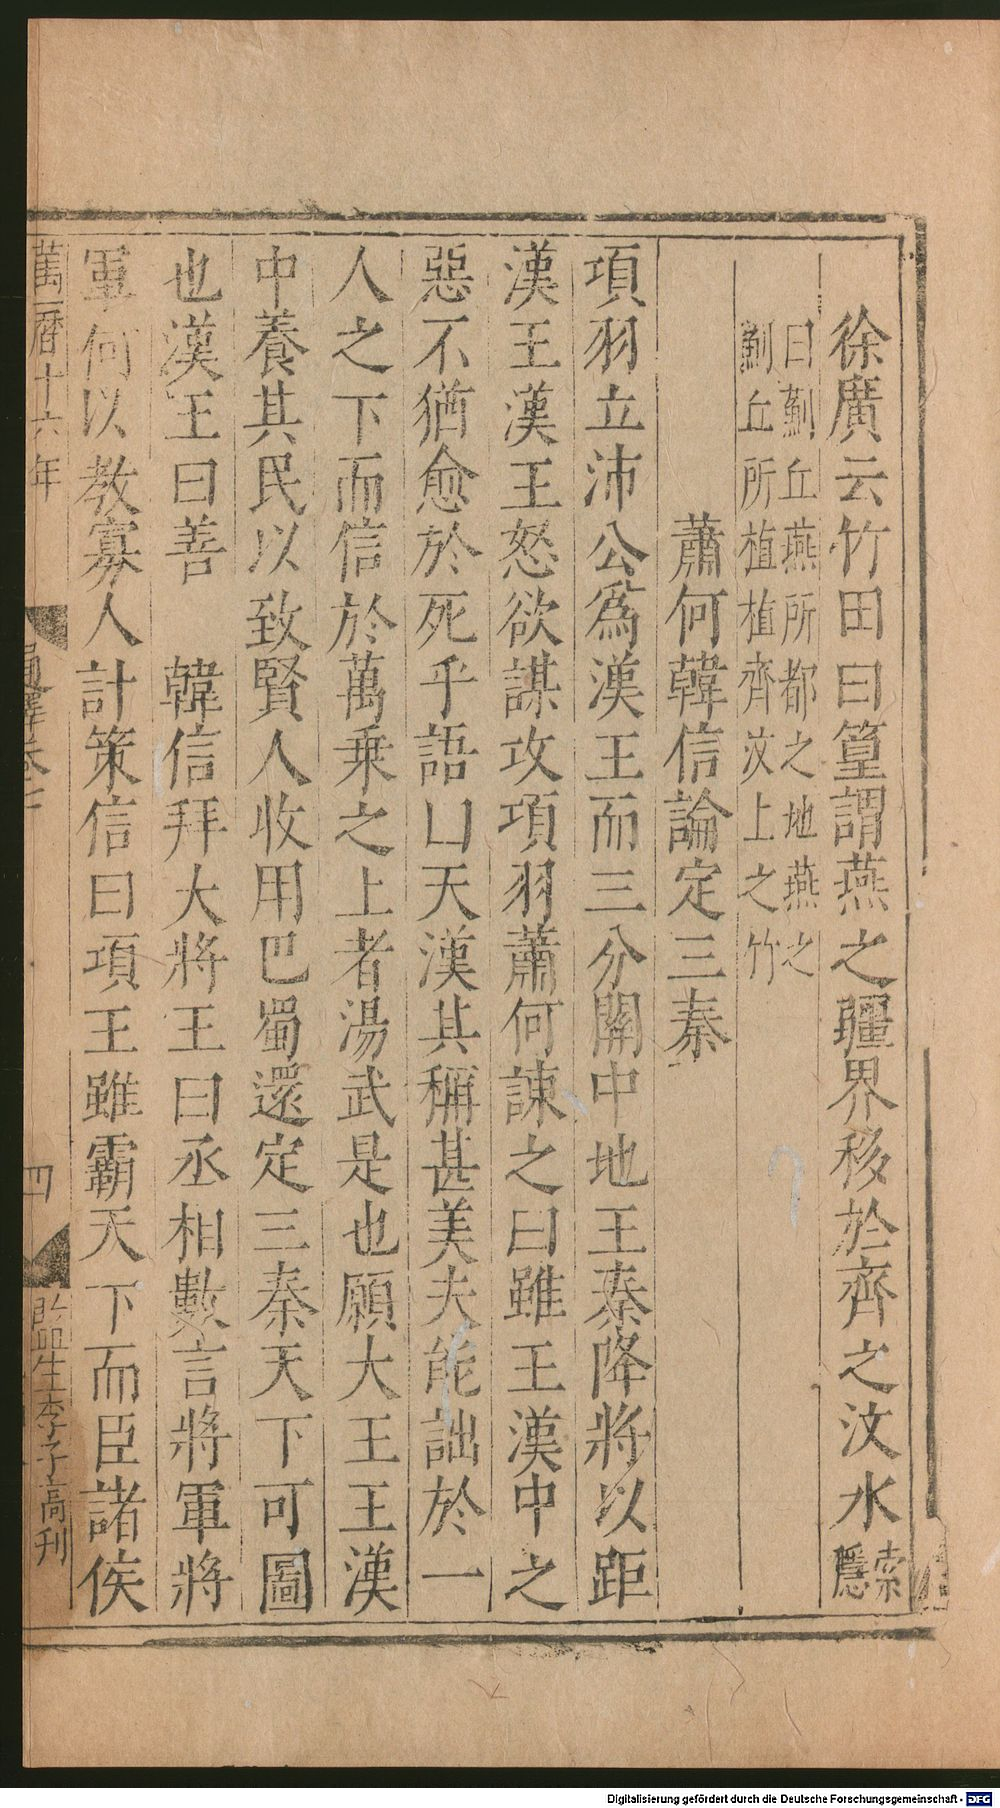 徐廣云竹田曰篁謂燕之疆界移於齊之汶水索隱
曰薊丘燕所都之地燕之
薊丘所植植齊汶上之竹
蕭何韓信論定三秦
項羽立沛公爲漢王而三分關中地王秦降將以距
漢王漢王怒欲謀攻項羽蕭何諫之曰雖王漢中之
惡不猶愈於死乎語曰天漢其稱甚美夫能詘於一
人之下而信於萬乗之上者湯武是也願大王王漢
中養其民以致賢人收用巴蜀還定三秦天下可圖
也漢王曰善 韓信拜大將王曰丞相數言將軍將
軍何以教寡人計策信曰項王雖霸天下而臣諸侯
萬曆十六年
四
監生李子高刊
Digitalisierung gefördert durch die Deutsche Forschungsgemeinschaft - DFG